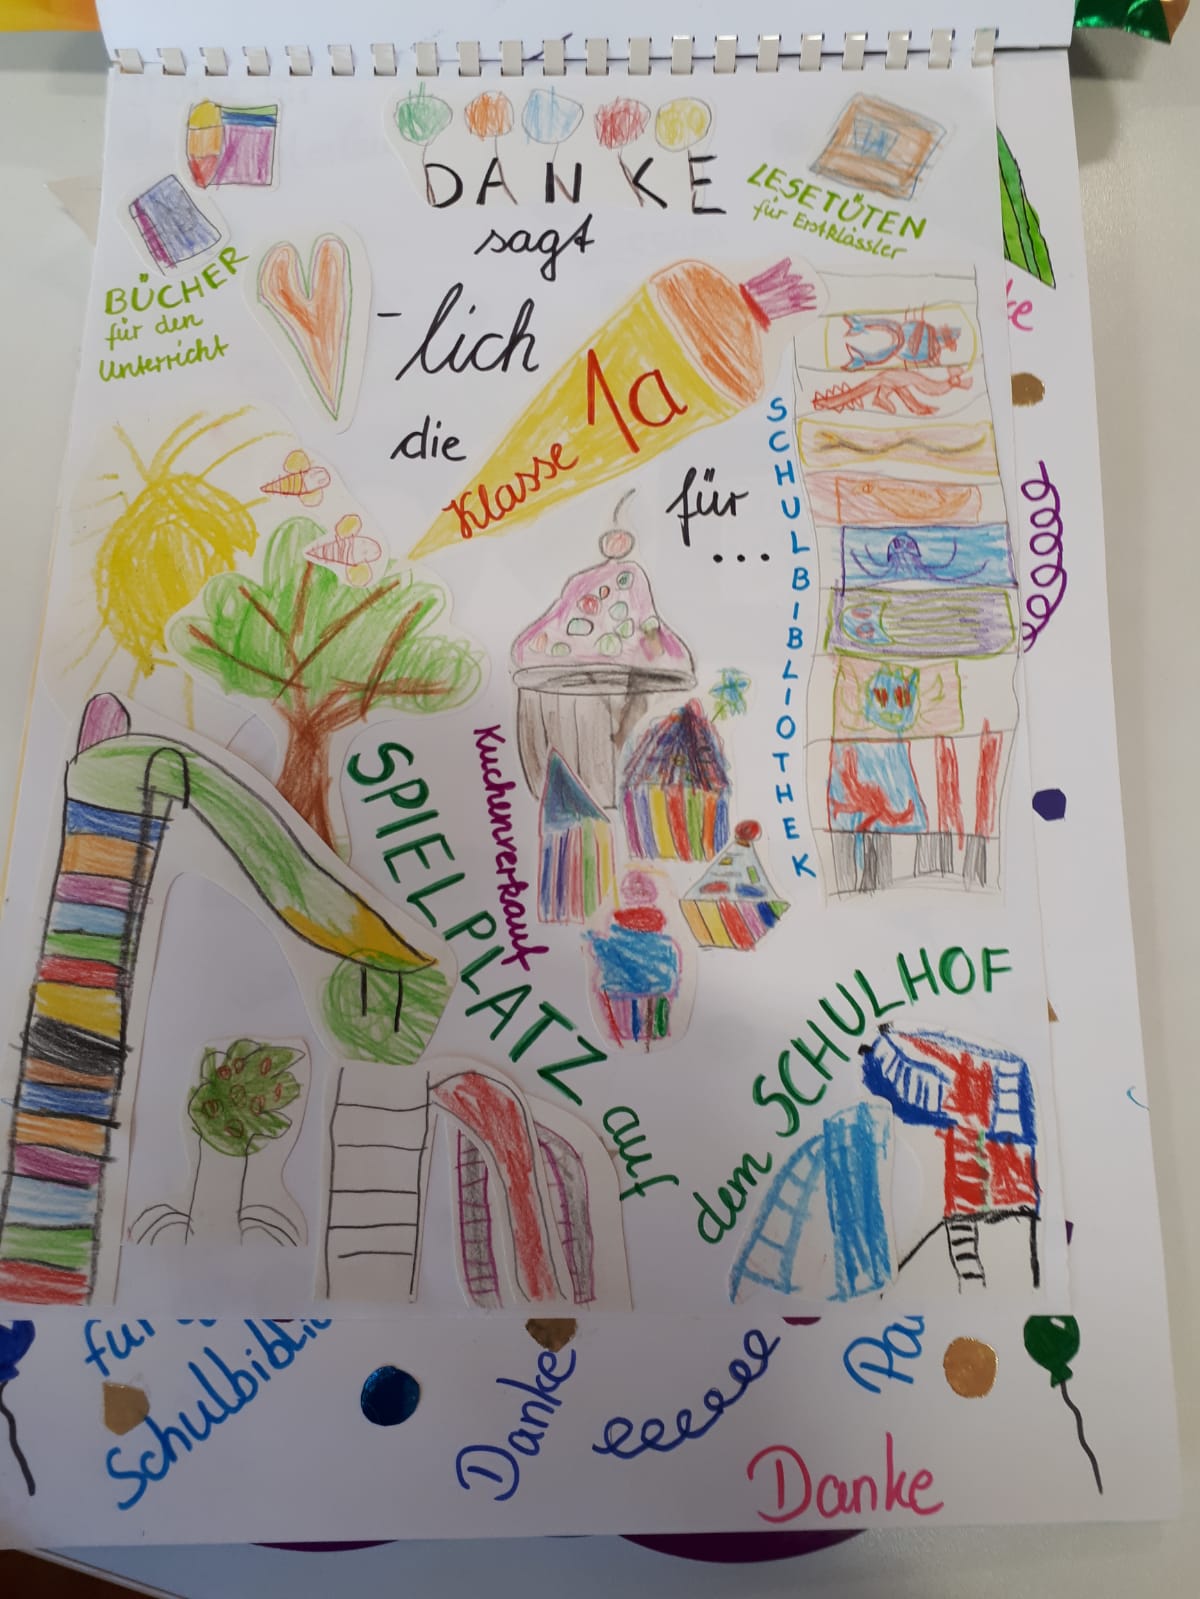 DANKE
sagt
-lich
die
Klasse 1a
für
...
BÜCHER
für den
Unterricht
LESETÜTEN
für Erstklässler
SCHULBIBLIOTHEK
Kuchenverkauf
SPIELPLATZ auf
dem SCHULHOF
für
Danke
Danke